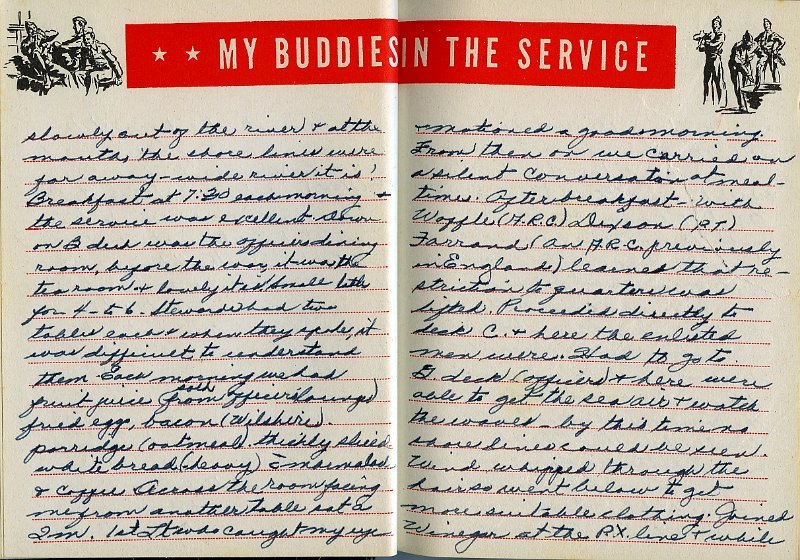 ★ ★ MY BUDDIES IN THE SERVICE
slowly out of the river) + at the
mouth, the shore lines were
far away - wide river it is!
Breakfast at 7:30 each morning +
the service was excellent. Down
on B deck was the officers dining
room, before the war, it was the
tea room + lovely it is! Small tables
for 4 - to 6. Stewards had two
tables each + when they spoke, it
was difficult to understand
them. Each morning we had
fruit juice (sold from officers lounge)
fried egg, bacon (Wilshire).
porridge (oatmeal). thickly sliced
white bread (heavy) marmalade
+ coffee. Across the room facing
me from another table sat a
2 m. 1st Lt who caught my eye
+ motioned a good morning.
From then on we carried on
a silent conversation at meal-
time. After breakfast - with
Waffle (A.R.C) Dixson (P.T.)
Farrand (an A.R.C. previously
in England) learned that re-
striction to quarters was
lifted. Proceeded directly to
deck C. + here the enlisted
men were. Had to go to
B deck (officers) + here were
able to get the sea air + watch
the waves - by this time no
shore lines could be seen.
Wind whipped through the
hair so went below to get
more suitable clothing. Joined
Winegar at the PX line + while